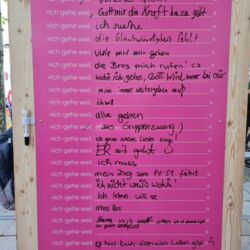 »Ich gehe weil
Gott mir die Kraft dazu gibt
»Ich gehe weil
ich suche
»Ich gehe weil
die Glaubwürdigkeit fehlt
»Ich gehe weil
viele mit mir gehen
»Ich gehe weil
die Berge mich rufen!
»Ich gehe weil
wohin ich gehe, Gott wird immer bei mir
»Ich gehe weil
man immer weitergehen muß
»Ich gehe weil
ich will
»Ich gehe weil
alle gehen
»Ich gehe weil
aus Gruppenzwang!
»Ich gehe weil
ich gerne schöne Lieder singe!
»Ich gehe weil
ER mit geht
»Ich gehe weil
ich muss
»Ich gehe weil
mein Zug um 14:51 fährt
»Ich gehe weil
ich nicht weiß wohin!
»Ich gehe weil
ich leben will
»Ich gehe weil
»Ich gehe weil
»Ich gehe weil
es hier kein